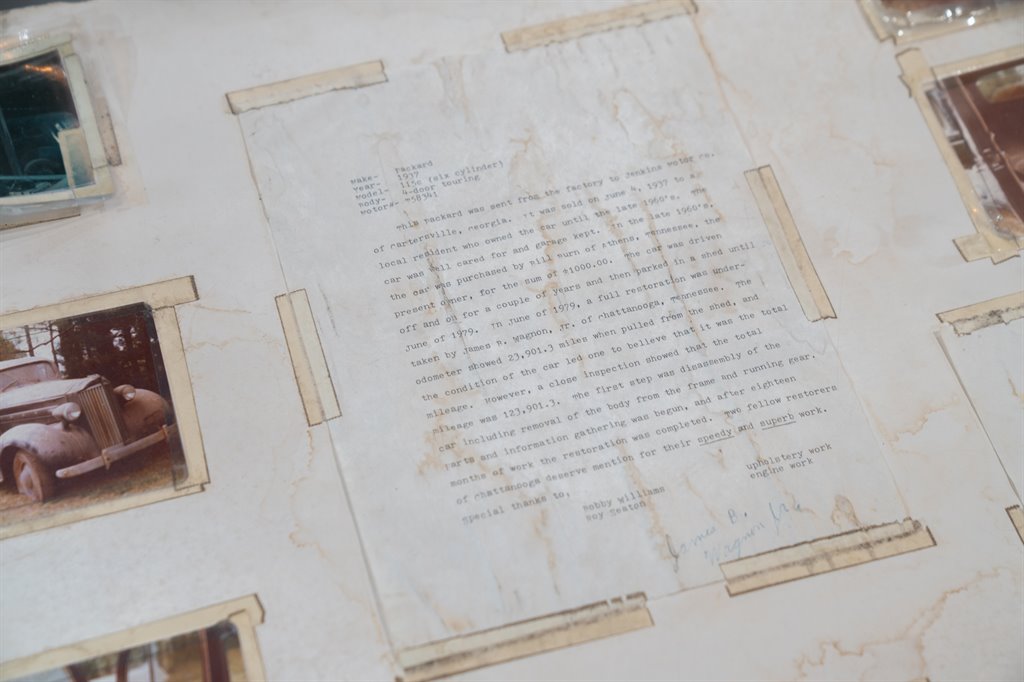 Make- Packard
Year- 1937
Model- 115C (six cylinder)
Body- 4-door touring
Motor#- M58341
This Packard was sent from the factory to Jenkins Motor Co.
of Cartersville, Georgia. It was sold on June 4, 1937 to a
local resident who owned the car until the late 1960's. The
car was well cared for and garage kept. In the late 1960's,
the car was purchased by Bill Burn of Athens, Tennessee, the
present owner, for the sum of $1000.00. The car was driven
off and on for a couple of years and then parked in a shed until
June of 1979. In June of 1979, a full restoration was under-
taken by James B. Wagnon, Jr. of Chattanooga, Tennessee. The
odometer showed 23,901.3 miles when pulled from the shed, and
the condition of the car led one to believe that it was the total
mileage. However, a close inspection showed that the total
mileage was 123,901.3. The first step was disassembly of the
car including removal of the body from the frame and running gear.
Parts and information gathering was begun, and after eighteen
months of work the restoration was completed. Two fellow restorers
of Chattanooga deserve mention for their speedy and superb work.
Special thanks to, Bobby Williams upholstery work
Roy Seaton engine work
James B.
Wagnon Jr.